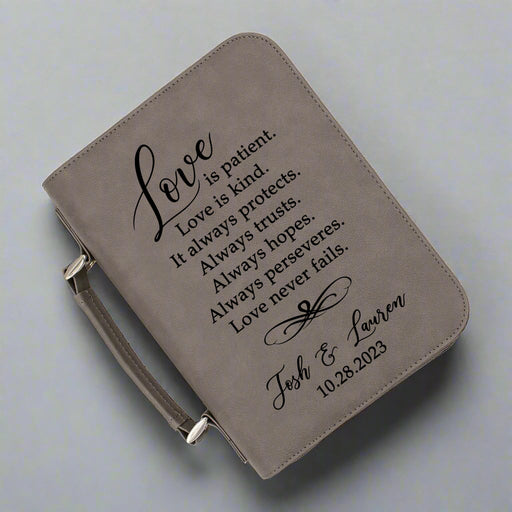 Love is patient.
Love is kind.
It always protects.
Always trusts.
Always hopes.
Always perseveres.
Love never fails.
Josh & Lauren
10.28.2023